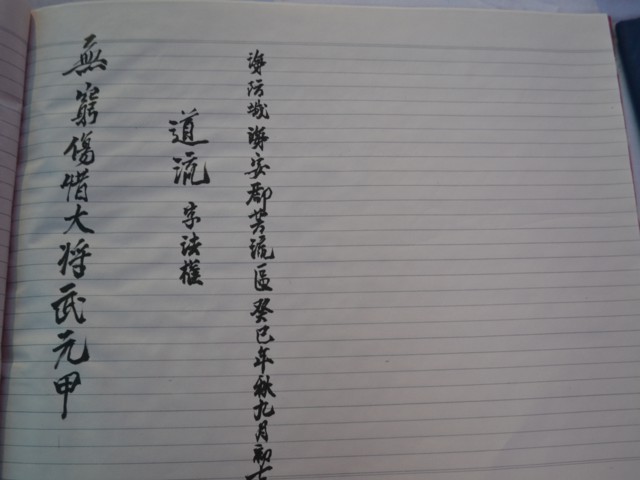 無窮傷惜大将武元甲
道流字法權
海防城海安郡芳流區癸巳年秋九月初